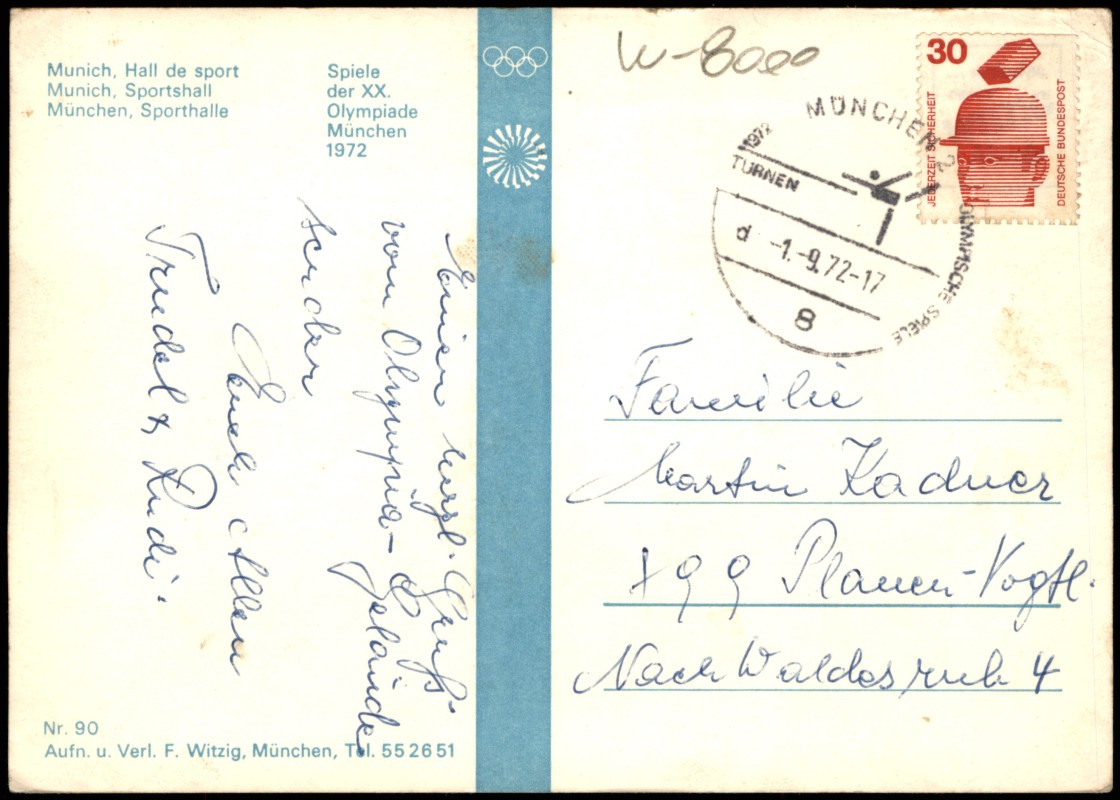 Munich, Hall de sport
Munich, Sportshall
München, Sporthalle
Spiele
der XX.
Olympiade
München
1972
W-8000
30
JEDERZEIT SICHERHEIT
DEUTSCHE BUNDESPOST
MÜNCHEN 2
OLYMPISCHE SPIELE
1972
TURNEN
d -1.-9.72-17
8
Einen herzl. Gruß
vom Olympia-Gelände
senden
Euch Allen
Trudel & Rudi.
Familie
Martin Kadner
99 Plauen-Vogtl.
Nach Waldesruh 4
Nr. 90
Aufn. u. Verl. F. Witzig, München, Tel. 55 26 51